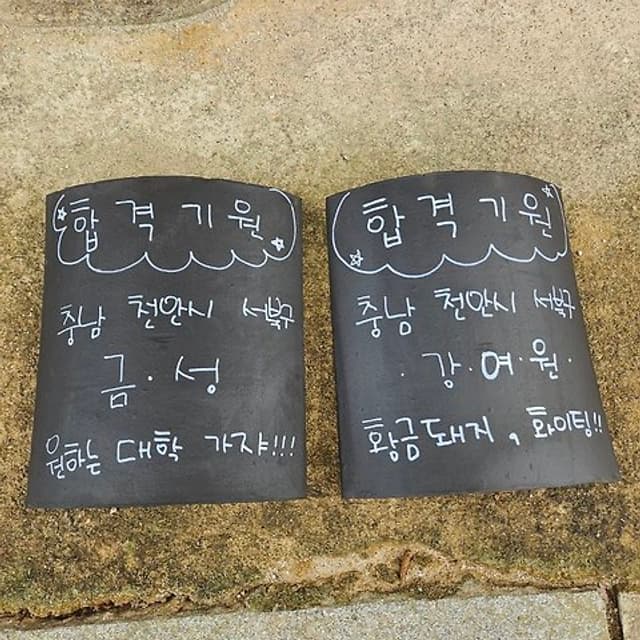 합격기원
충남 천안시 서북구
금·성
원하는 대학 가쟈!!!
합격기원
충남 천안시 서북구
·강·여·원·
황금돼지, 화이팅!!